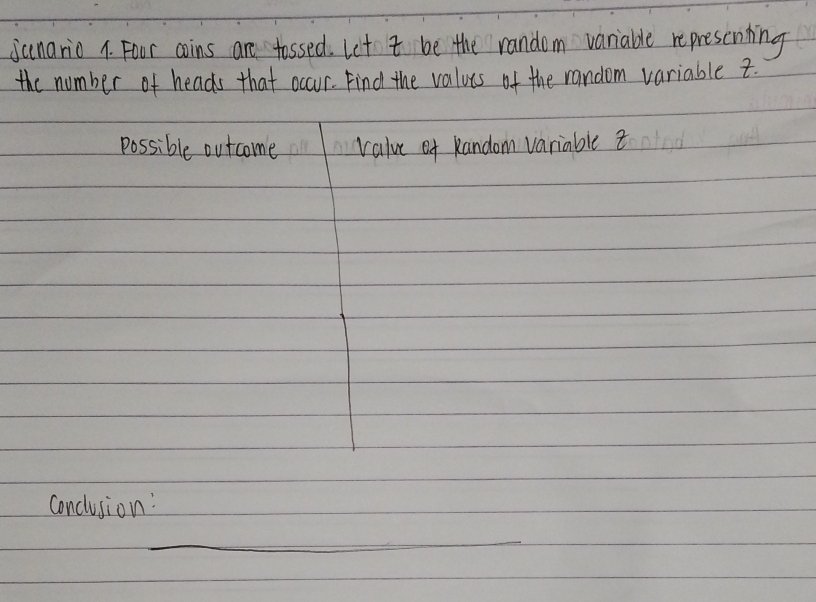 Scenario 1. Four coins are tossed. Let Z be the random variable representing
the number of heads that occur. Find the values of the random variable Z.
Possible outcome Value of Random Variable Z
Conclusion: